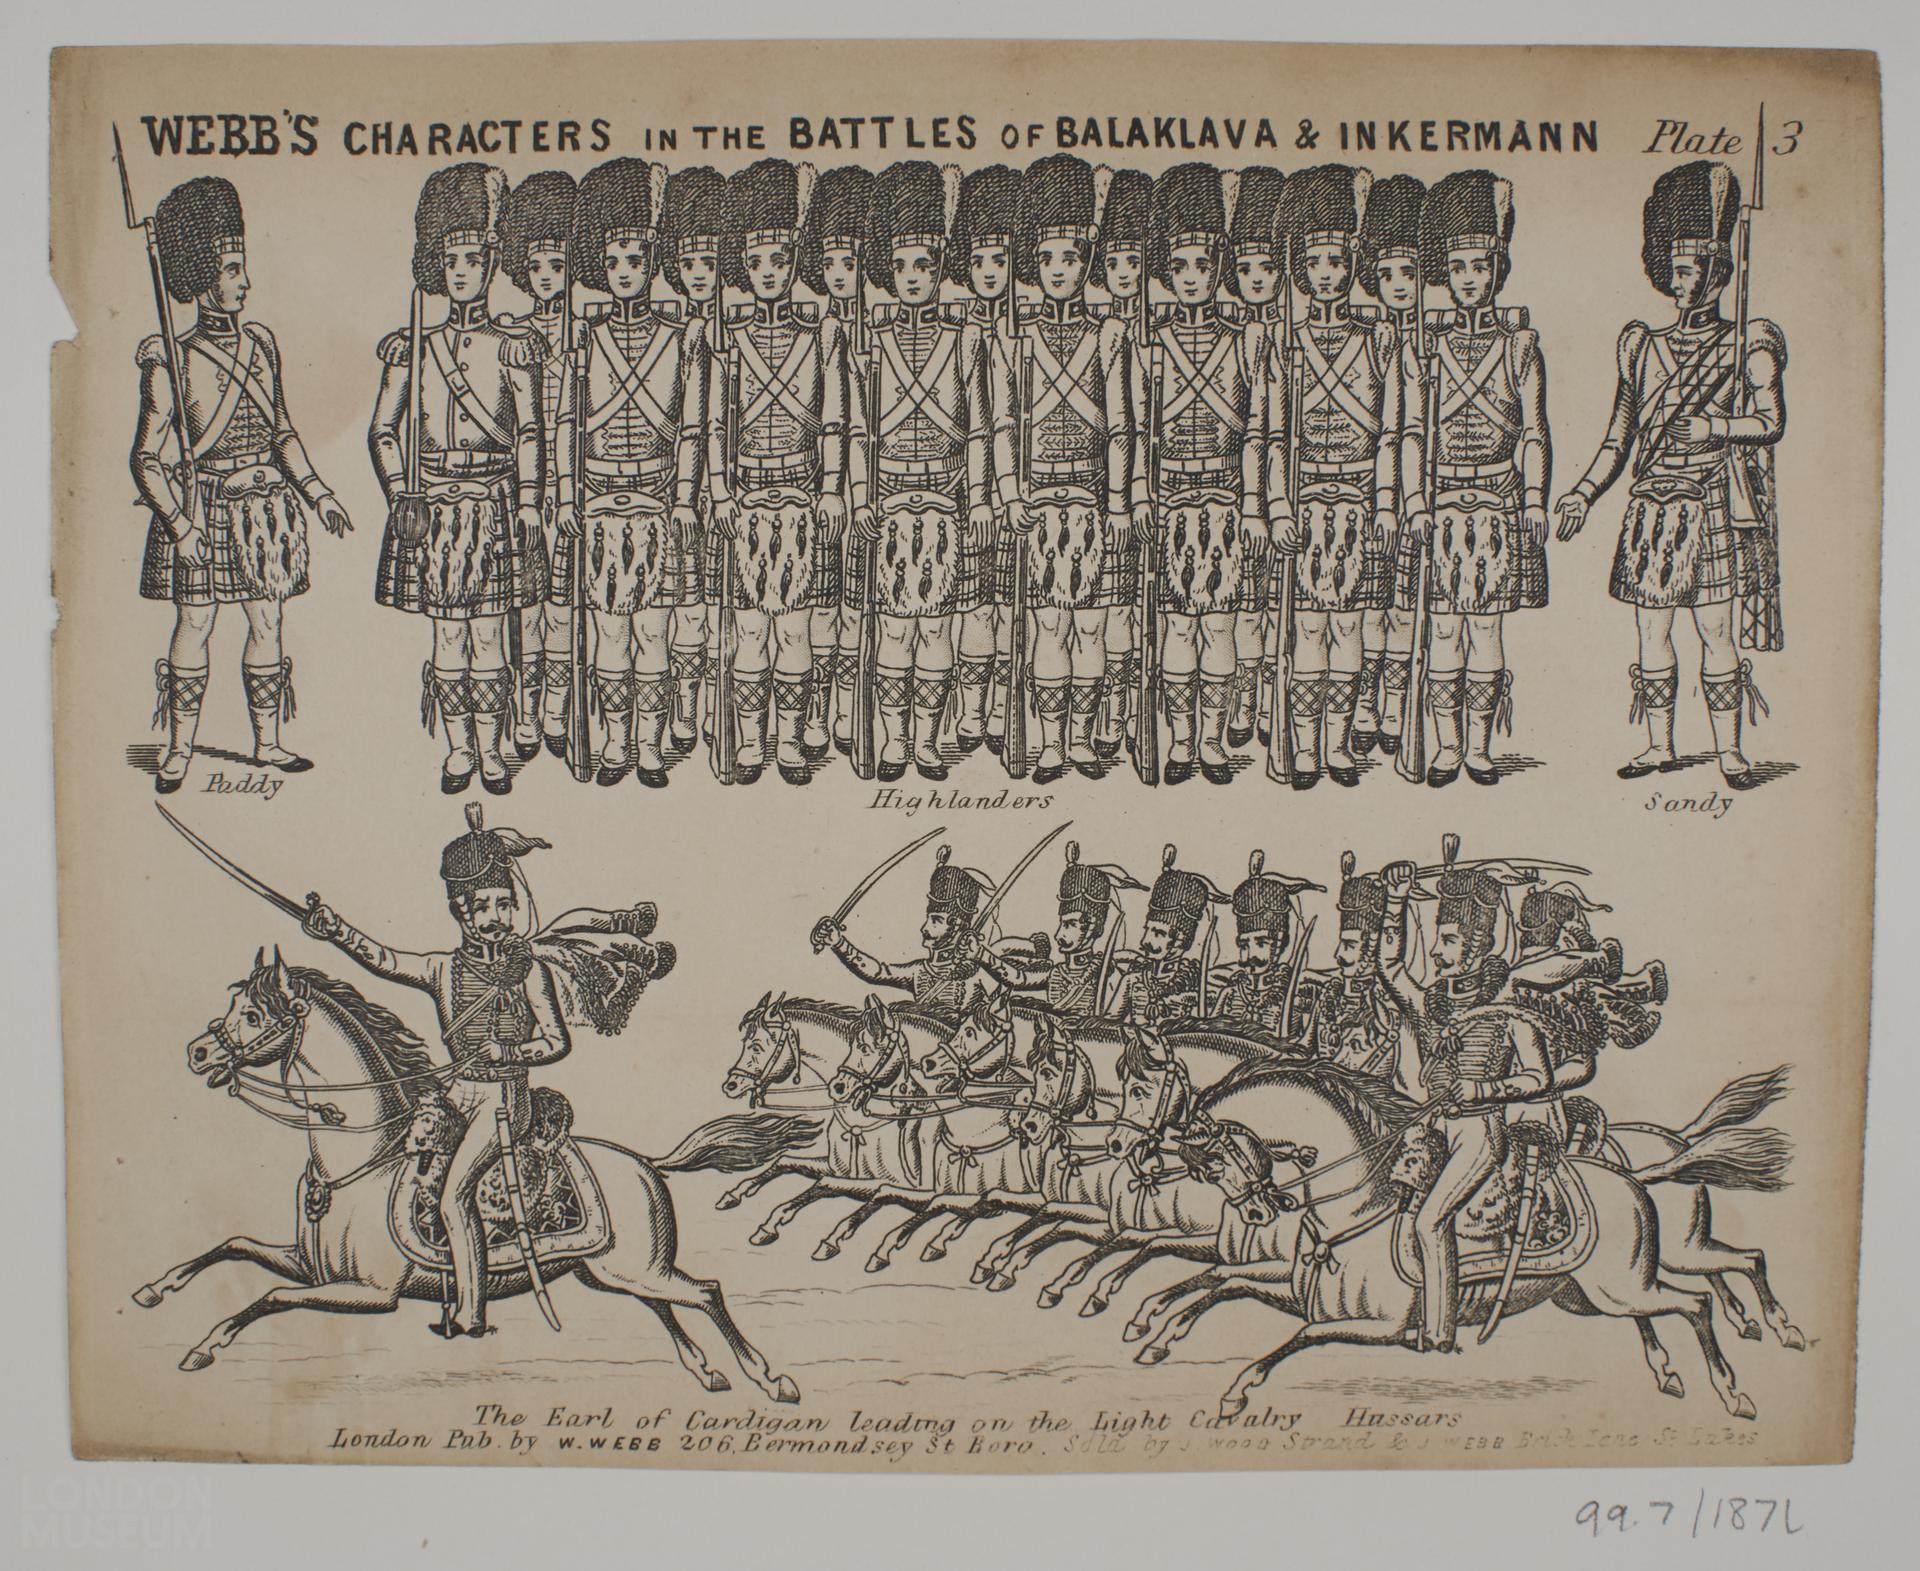 WEBB'S CHARACTERS IN THE BATTLES OF BALAKLAVA & INKERMANN Plate 3
Paddy
Highlanders
Sandy
The Earl of Cardigan leading on the Light Cavalry Hussars
London Pub. by W. WEBB 206, Bermondsey St Boro. Sold by J. WOOD Strand & J WEBB Brick Lane St Lukes
LONDON
MUSEUM
99.7/187L